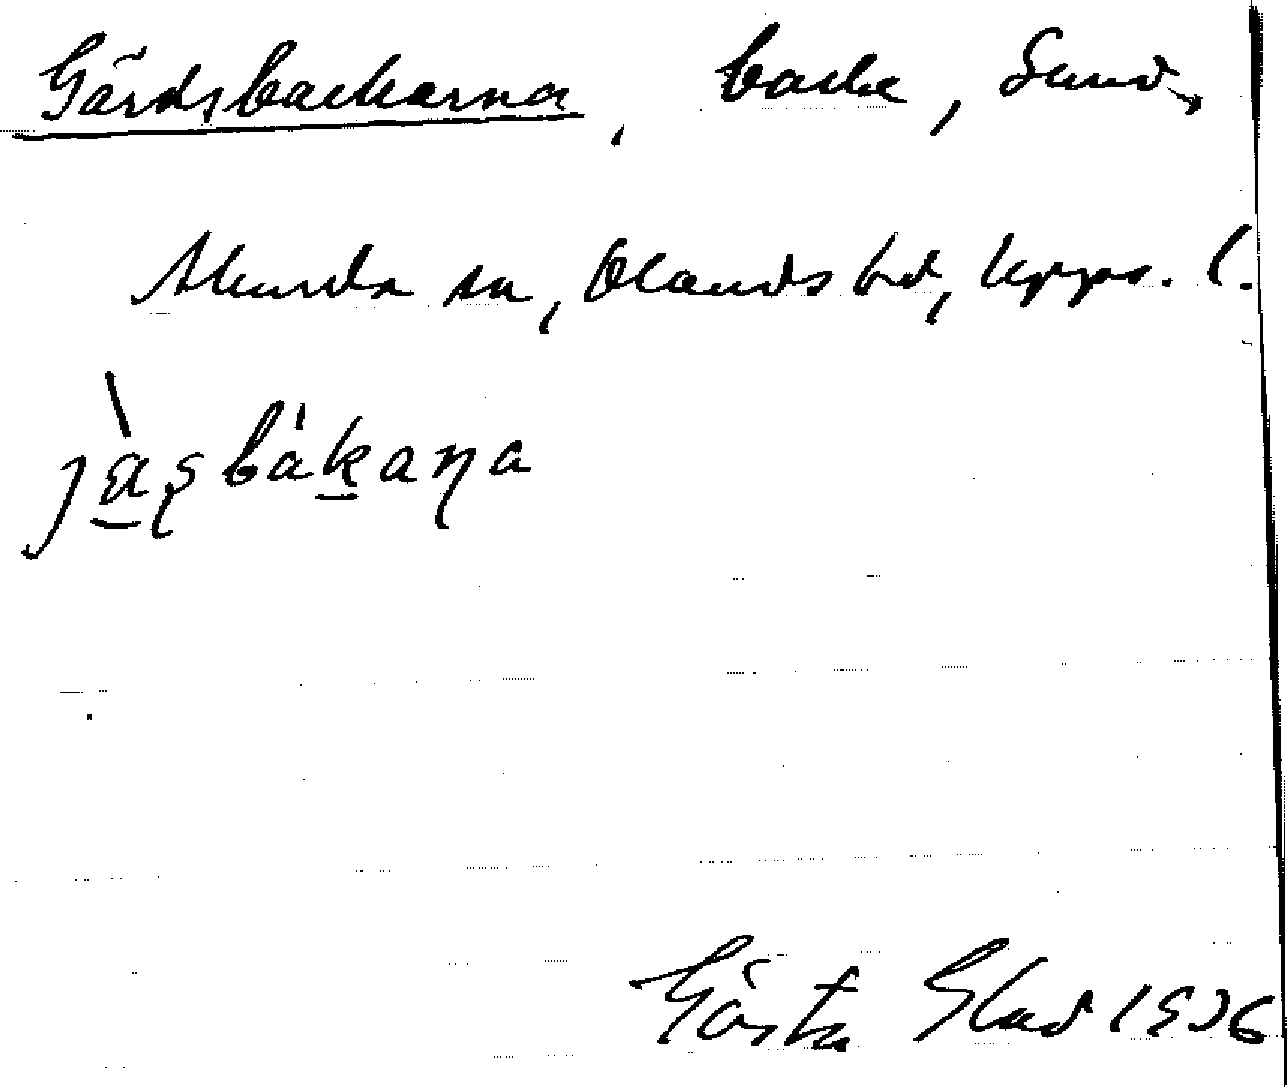 Gärdsbackarna, backe, Sund,
Alunda sn, Olands hd, Upps. l.
jäʂbákaɳa
Gösta Glad 1936